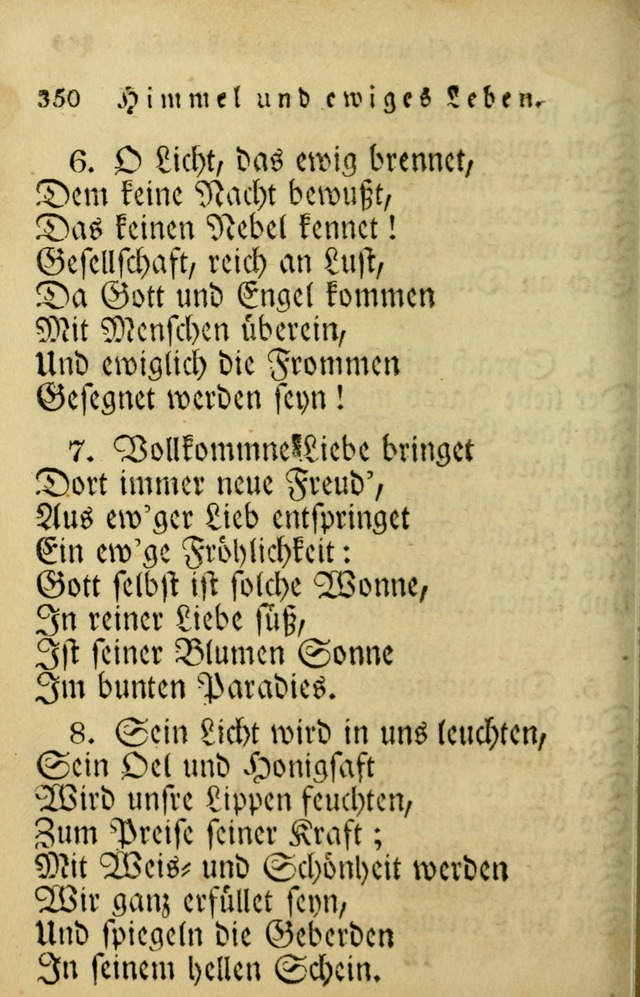 350 Himmel und ewiges Leben.
6. O Licht, das ewig brennet,
Dem keine Nacht bewußt,
Das keinen Nebel kennet!
Gesellschaft, reich an Lust,
Da Gott und Engel kommen
Mit Menschen überein,
Und ewiglich die Frommen
Gesegnet werden seyn!
7. Vollkommne Liebe bringet
Dort immer neue Freud',
Aus ew'ger Lieb entspringet
Ein ew'ge Fröhlichkeit:
Gott selbst ist solche Wonne,
In reiner Liebe süß,
Ist seiner Blumen Sonne
Im bunten Paradies.
8. Sein Licht wird in uns leuchten,
Sein Oel und Honigsaft
Wird unsre Lippen feuchten,
Zum Preise seiner Kraft;
Mit Weis- und Schönheit werden
Wir ganz erfüllet seyn,
Und spiegeln die Geberden
In seinem hellen Schein.